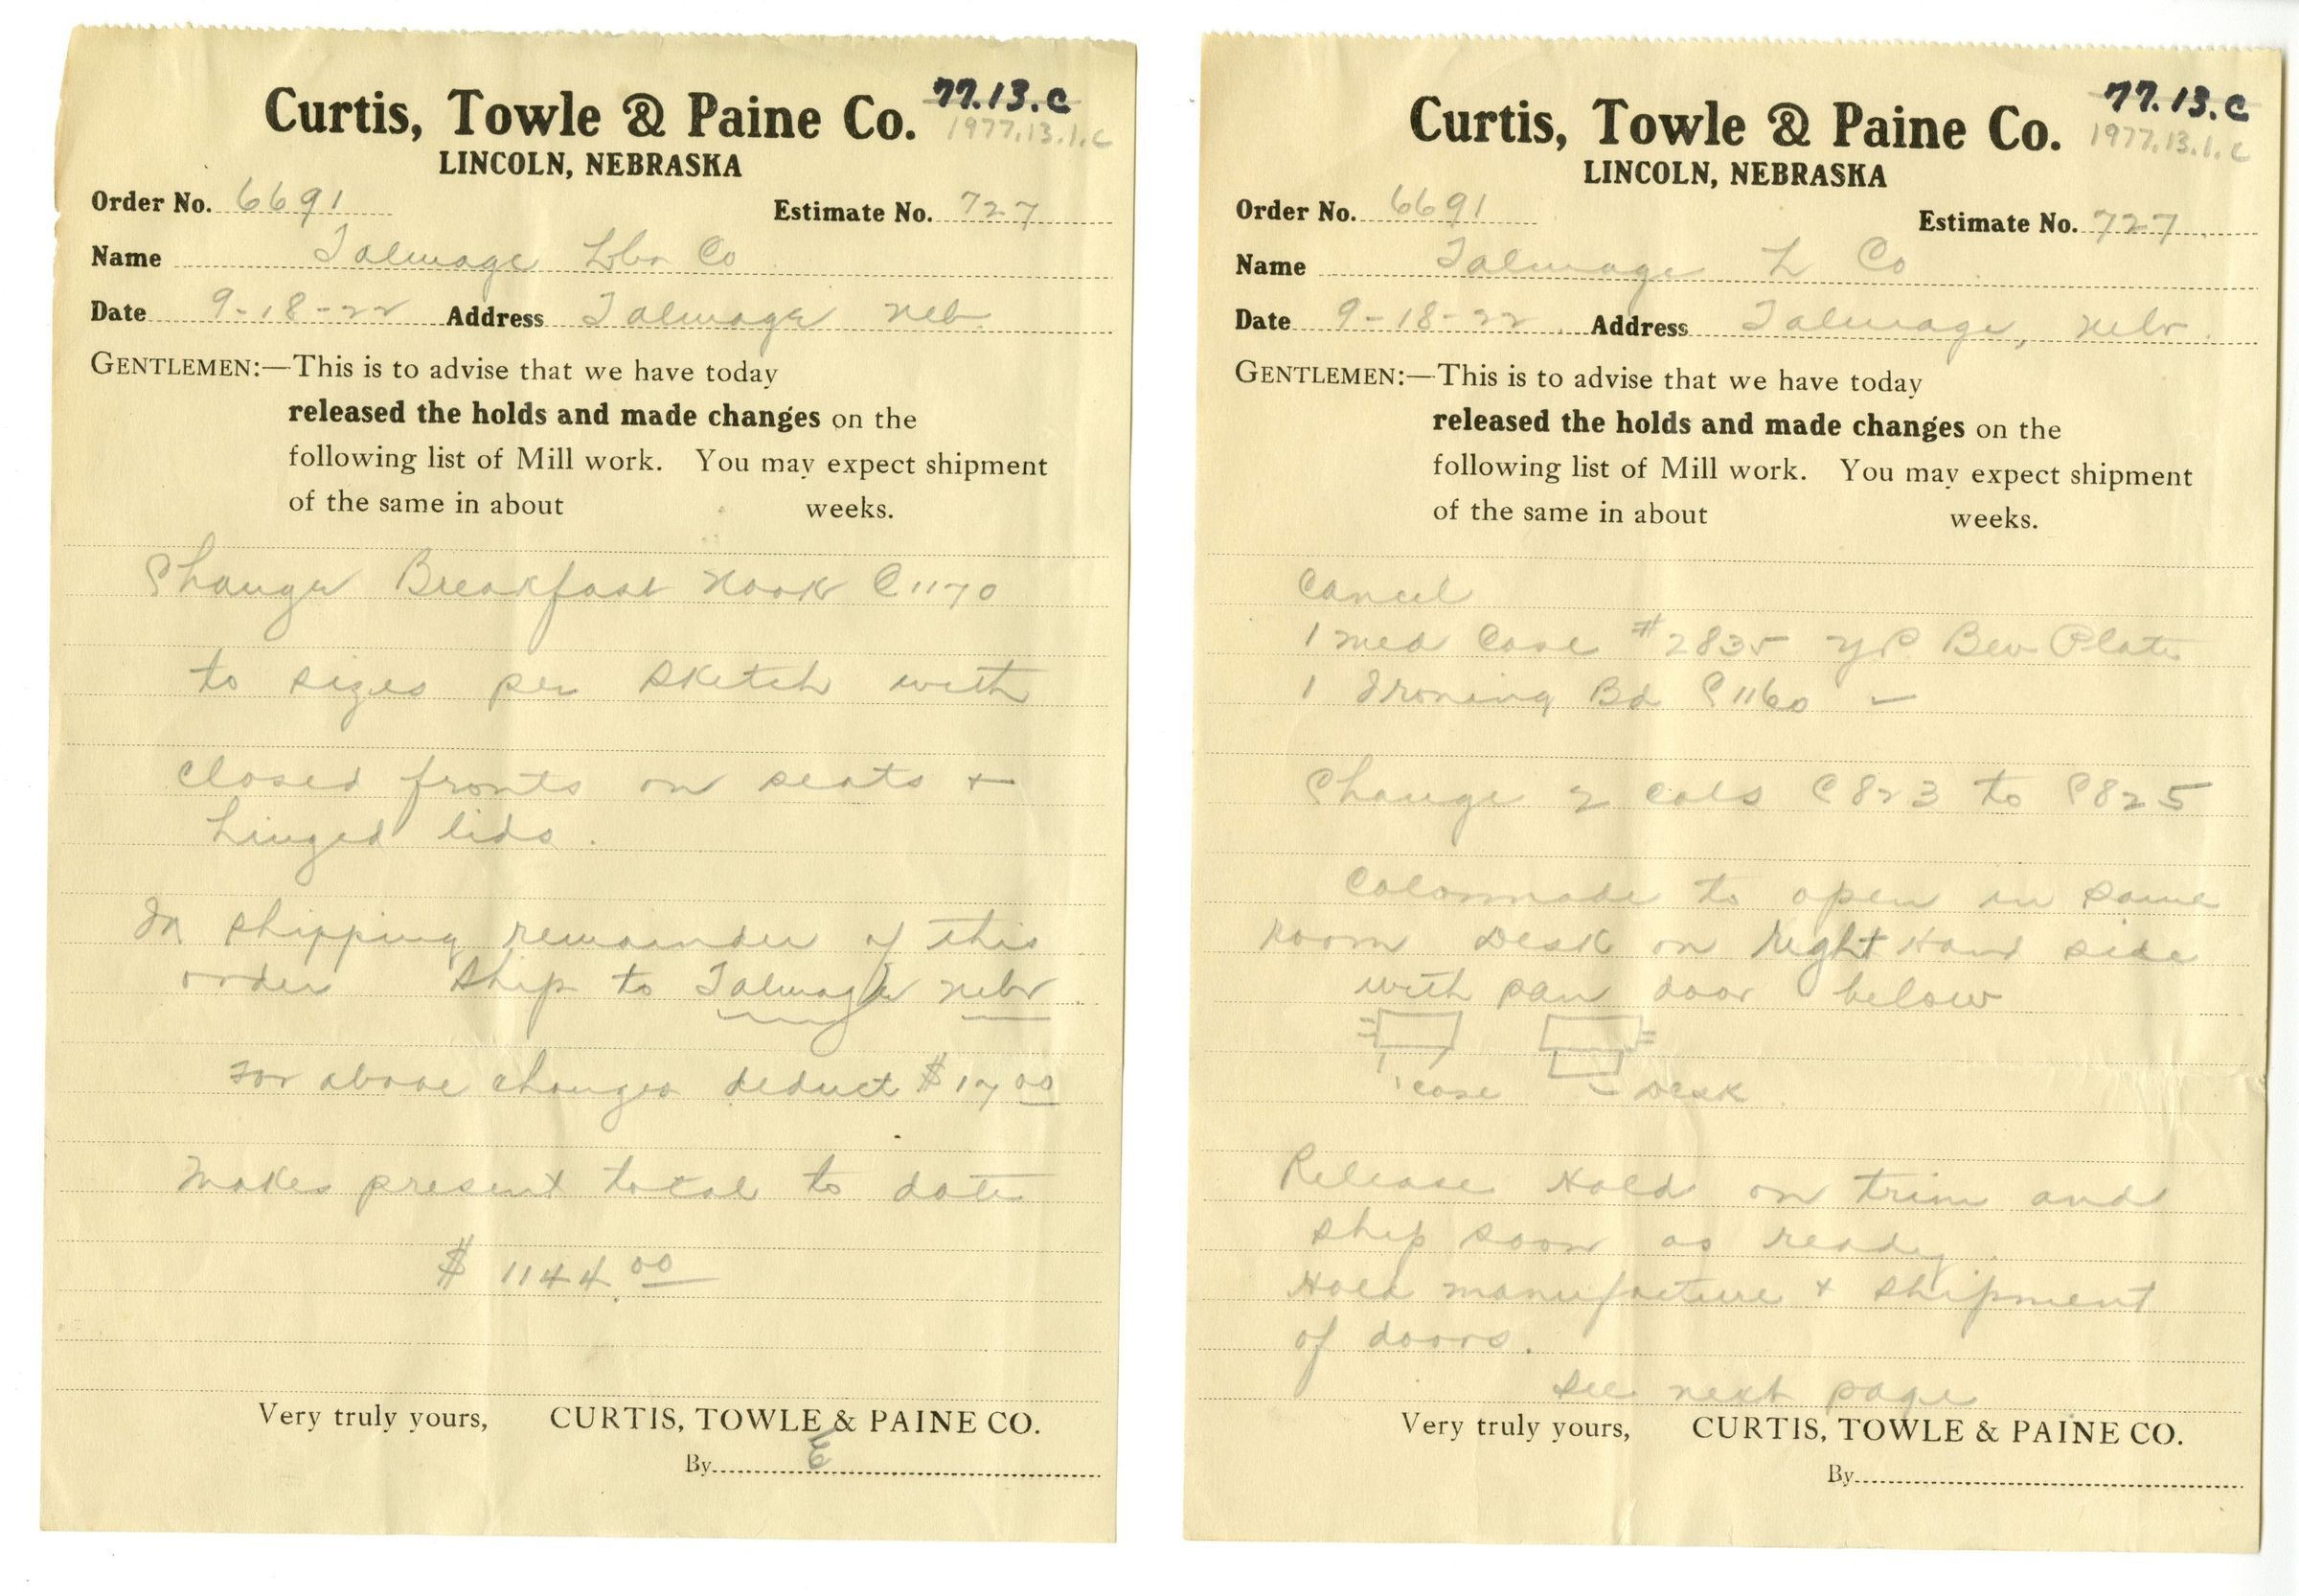 Curtis, Towle & Paine Co.
77.13.C
1977.13.1.C
LINCOLN, NEBRASKA
Order No. 6691
Estimate No. 727
Name Talmage Lbr Co
Date 9-18-22 Address Talmage Neb.
GENTLEMEN:—This is to advise that we have today
released the holds and made changes on the
following list of Mill work. You may expect shipment
of the same in about weeks.
Change Breakfast Nook C1170
to sizes per sketch with
closed fronts on seats +
hinged lids.
In shipping remainder of this
order ship to Talmage Nebr.
For above changes deduct $17.00
Makes present total to date
$1144.00
Very truly yours, CURTIS, TOWLE & PAINE CO.
By
Curtis, Towle & Paine Co.
77.13.C
1977.13.1.C
LINCOLN, NEBRASKA
Order No. 6691
Estimate No. 727
Name Talmage L Co
Date 9-18-22 Address Talmage, Nebr.
GENTLEMEN:—This is to advise that we have today
released the holds and made changes on the
following list of Mill work. You may expect shipment
of the same in about weeks.
Cancel
1 Med Case #2835 YP Bev Plate
1 Ironing Bd C1160 —
Change 2 cols C823 to C825
Colonnade to open in same
room Desk on Right Hand side
with pan door below
case Desk
Release Hold on trim and
ship soon as ready.
Hold manufacture + shipment
of doors.
See next page
Very truly yours, CURTIS, TOWLE & PAINE CO.
By